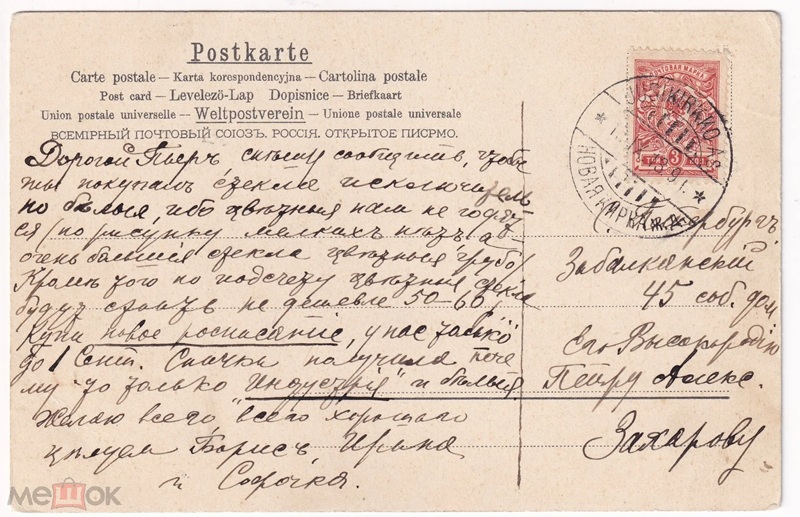 Postkarte
Carte postale — Karta korespondencyjna — Cartolina postale
Post card — Levelező-Lap Dopisnice — Briefkaart
Union postale universelle — Weltpostverein — Unione postale universale
ВСЕМІРНЫЙ ПОЧТОВЫЙ СОЮЗЪ. РОССІЯ. ОТКРЫТОЕ ПИСРМО.
Дорогой Петръ спѣшу сообщить, чтобы
ты покупалъ стекла исключитель
но бѣлыя, ибо цвѣтныя нам не годят
ся (по рисунку мелких
очень большія стекла цвѣтныя грубо)
Кромѣ того по подсчету цвѣтныя стекла
будут стоить не дешевле 50-60
Купи новое росписание, у нас только
до 1 Сент. Скачки получила поче
му то только "Индустрія" и бѣлыя
Желаю всего, всего хорошаго
цѣлуем Борисъ, Ирина
и Софочка.
ПОЧТОВАЯ МАРКА
3 КОП
НОВАЯ КИРКА
Петербургъ
Забалканскій
45 соб. дом
Его Высокородію
Петру Алекс.
Захарову
мешок